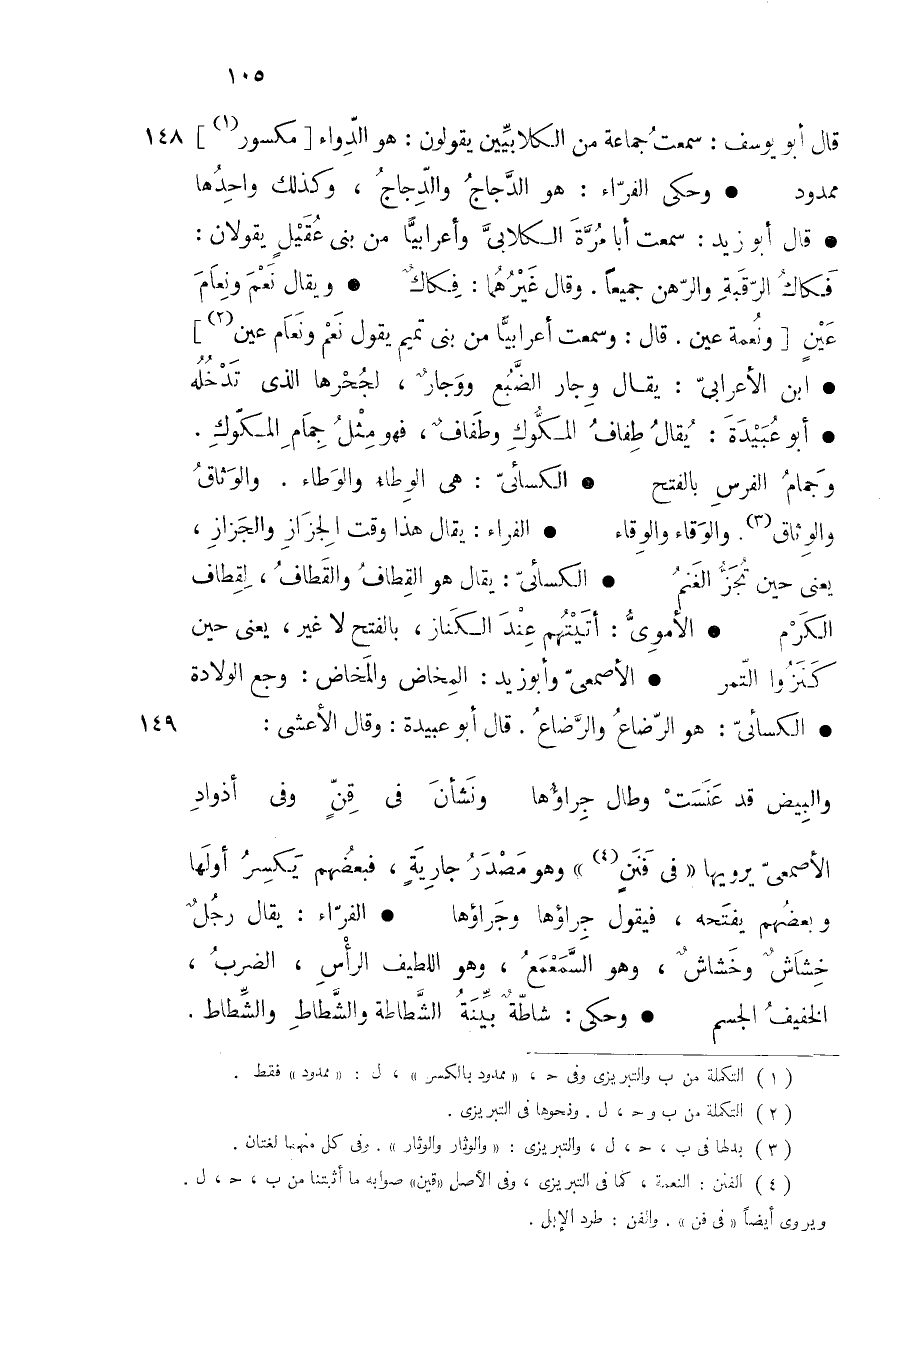 ١٠٥
قال أبو يوسف : سمعتُ جماعة من الكلابيِّين يقولون : هو الدِّواء [ مكسور(١) ] ١٤٨
ممدود ● وحكى الفرّاء : هو الدَّجاجُ والدِّجاجُ ، وكذلك واحِدُها
● قال أبو زيد : سمعت أبا مُرَّةَ الكلابيَّ وأعرابيًّا من بنى عُقَيْلٍ يقولان :
فَكاكُ الرّقَبةِ والرّهن جميعاً . وقال غَيْرُهُما : فِكاكٌ ● ويقال نَعْمَ ونِعامَ
عَيْنٍ [ ونُعمة عين . قال : وسمعت أعرابيًّا من بنى تميم يقول نَعْمَ ونَعامَ عين(٢) ]
● ابن الأعرابىّ : يقال وِجار الضَّبُع ووَجارٌ ، لجُحْرها الذى تَدْخُلُه
● أبو عُبَيْدَةَ : يُقالُ طِفافُ المكُّوكِ وطَفافٌ ، فهو مِثْلُ جِمَامِ المكّوكِ .
وجَمامُ الفرسِ بالفتح ● الكسائىّ : هى الوِطاء والوَطاء . والوَثاقُ
والوِثاق(٣). والوَقاء والوِقاء ● الفراء : يقال هذا وقت الجِزَازِ والجَزازِ ،
يعنى حين تُجَزُّ الغَنمُ ● الكسائىّ : يقال هو القِطافُ والقَطافُ ، لِقِطاف
الكَرْم ● الأموىُّ : أتَيْتُهم عِنْدَ الكَناز ، بالفتح لا غير ، يعنى حين
كَنَزُوا التّمر ● الأصمعىّ وأبو زيد : المِخاض والمَخاض : وجع الولادة
● الكسائىّ : هو الرّضاعُ والرَّضاعُ . قال أبو عبيدة : وقال الأعشى : ١٤٩
والبِيض قد عَنَسَتْ وطال جِراؤُها ونَشأنَ فى قِنٍّ وفى أذوادِ
الأصمعىّ يرويها « فى فَنَنٍ(٤) » وهو مَصْدَرُ جارِيَةٍ ، فبعضُهم يَكسِرُ أولَها
وبعضُهم يفتَحه ، فيقول جِراؤها وجَراؤها ● الفرّاء : يقال رجُلٌ
خِشاَشٌ وخَشاشٌ ، وهو السَّمَعْمَعُ ، وهو اللطيف الرأْسِ ، الضربُ ،
الخفيفُ الجسم ● وحكى : شاطّةٌ بيِّنَةُ الشَّطاطة والشَّطاطِ والشِّطاط .
( ١ ) التكملة من ب والتبريزى وفى ح ، « ممدود بالكسر » ، ل : « ممدود » فقط .
( ٢ ) التكملة من ب و ح ، ل . ونحوها فى التبريزى .
( ٣ ) بدلها فى ب ، ح ، ل ، والتبريزى : « والوثار والوثار » . وفى كل منهما لغتان .
( ٤ ) الفنن : النعمة ، كما فى التبريزى ، وفى الأصل «قين» صوابه ما أثبتنا من ب ، ح ، ل .
ويروى أيضاً « فى فن » . والفن : طرد الإبل .